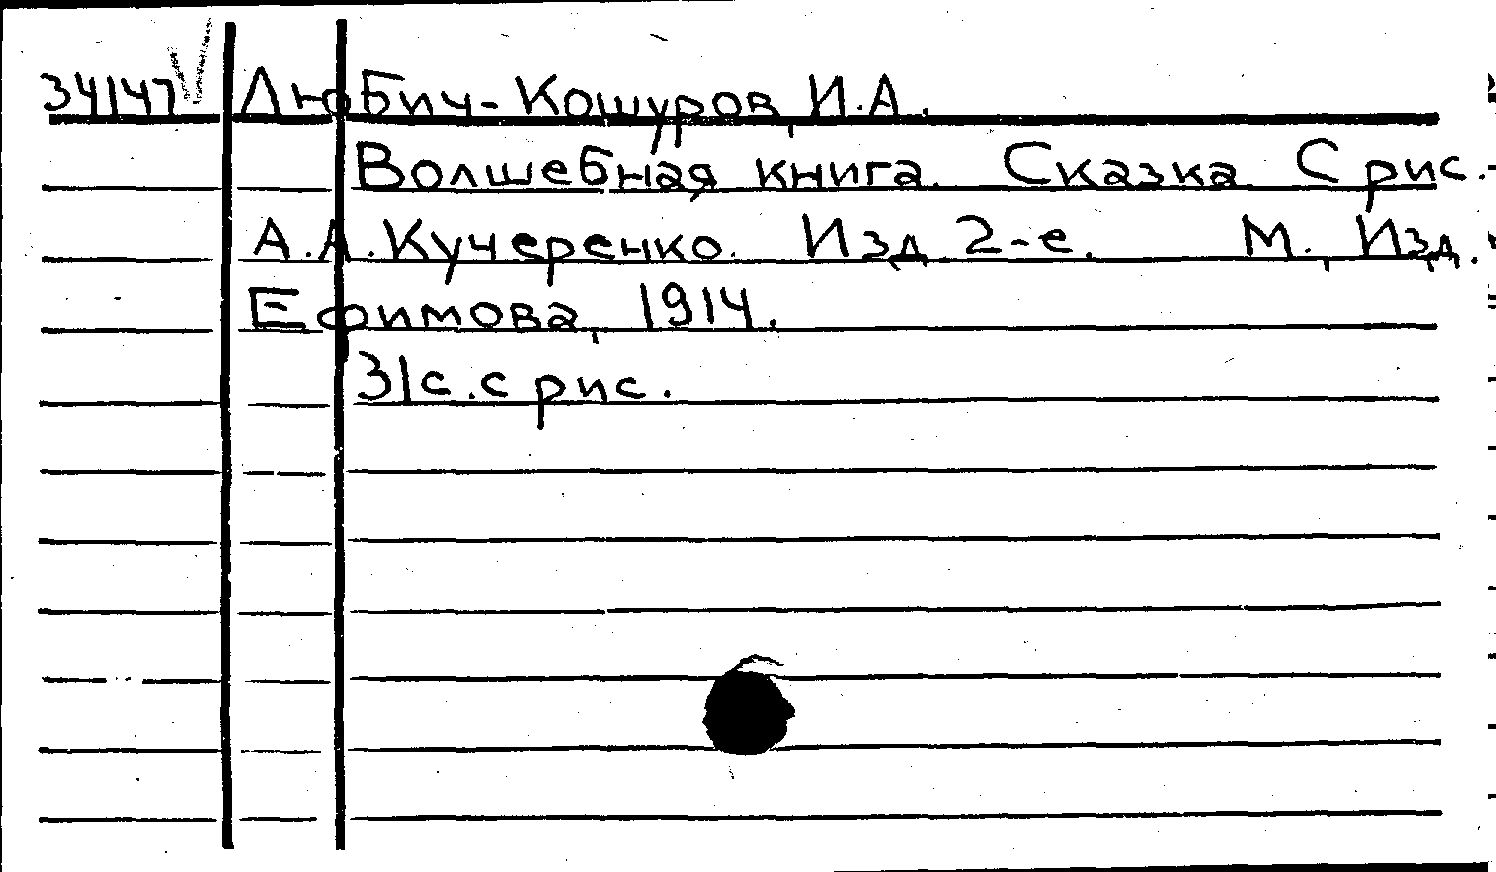 34147 V Любич-Кошуров, И.А.
Волшебная книга. Сказка. С рис.
А.А.Кучеренко. Изд. 2-е. М., Изд.
Ефимова, 1914.
31с. с рис.